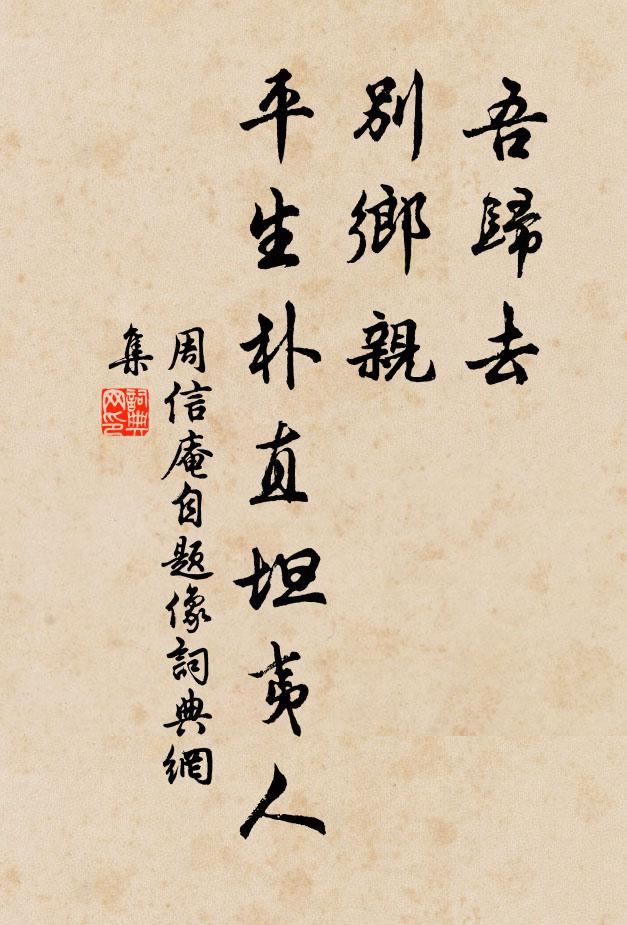 吾歸去
別鄉親
平生朴直坦夷人
周信庵自題像詞典網
集
詞典
网印